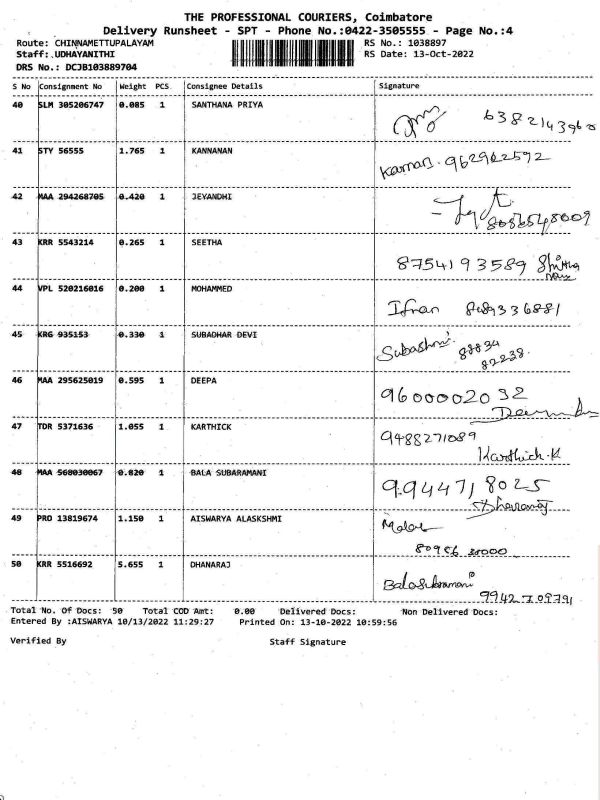 THE PROFESSIONAL COURIERS, Coimbatore
Delivery Runsheet - SPT - Phone No.:0422-3505555 - Page No.:4
Route: CHINNAMETTUPALAYAM RS No.: 1038897
Staff: UDHAYANITHI RS Date: 13-Oct-2022
DRS No.: DCJB103889704
S No Consignment No Weight PCS Consignee Details Signature
40 SLM 305206747 0.085 1 SANTHANA PRIYA
6382143960
41 STY 56555 1.765 1 KANNANAN
42 MAA 294268705 0.420 1 JEYANDHI
43 KRR 5543214 0.265 1 SEETHA
8754193589
44 VPL 520216016 0.200 1 MOHAMMED
Ifran
45 KRG 935153 0.330 1 SUBADHAR DEVI
88834
82238.
46 MAA 295625019 0.595 1 DEEPA
9600002032
47 TDR 5371636 1.055 1 KARTHICK
9488271089
Karthick.K
48 MAA 568030067 0.820 1 BALA SUBARAMANI
9944718025
49 PRO 13819674 1.150 1 AISWARYA ALASKSHMI
50 KRR 5516692 5.655 1 DHANARAJ
Balasubramani
9942709791
Total No. Of Docs: 50 Total COD Amt: 0.00 Delivered Docs: Non Delivered Docs:
Entered By :AISWARYA 10/13/2022 11:29:27 Printed On: 13-10-2022 10:59:56
Verified By Staff Signature